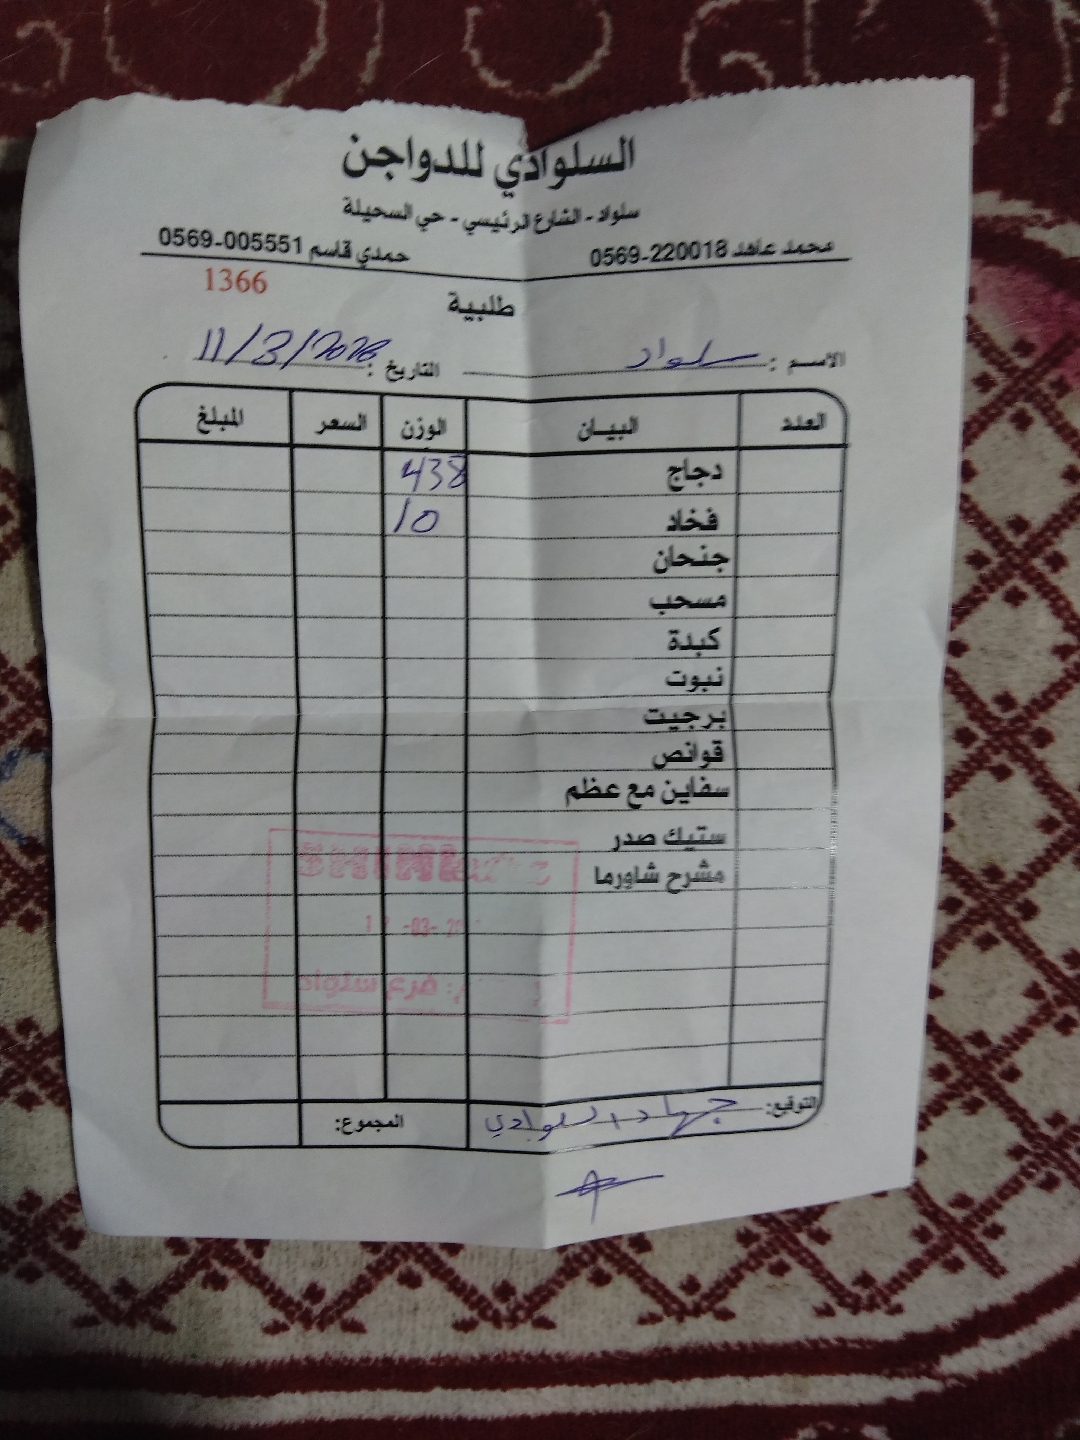 السلوادي للدواجن
سلواد - الشارع الرئيسي - حي السحيلة
محمد عاهد 0569-220018 حمدي قاسم 0569-005551
1366
طلبية
الاسم : سلواد التاريخ : 11/3/2026
العدد البيـان الوزن السعر المبلغ
دجاج 438
فخاد 10
جنحان
مسحب
كبدة
نبوت
برجيت
قوانص
سفاين مع عظم
ستيك صدر
مشرح شاورما
SHINI
-03-
فرع سلواد
التوقيع: جهاد السلوادي المجموع: